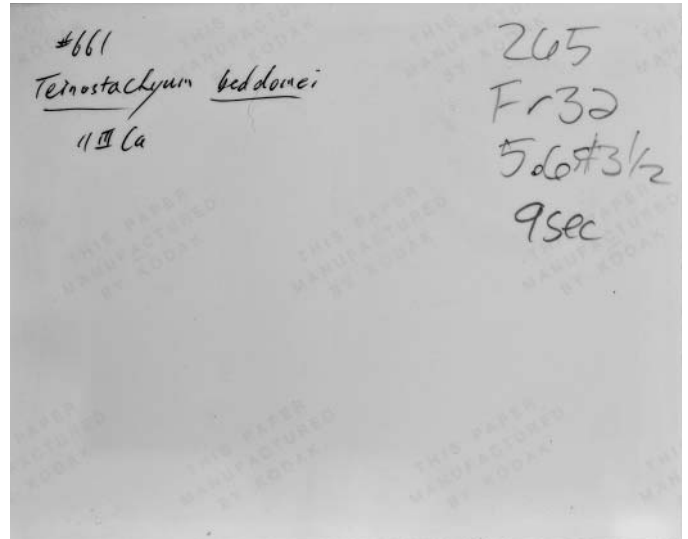 #661
Teinostachyum beddomei
11 III Ca
265
Fr32
5.6 #3 1/2
9sec
THIS PAPER
MANUFACTURED
BY KODAK